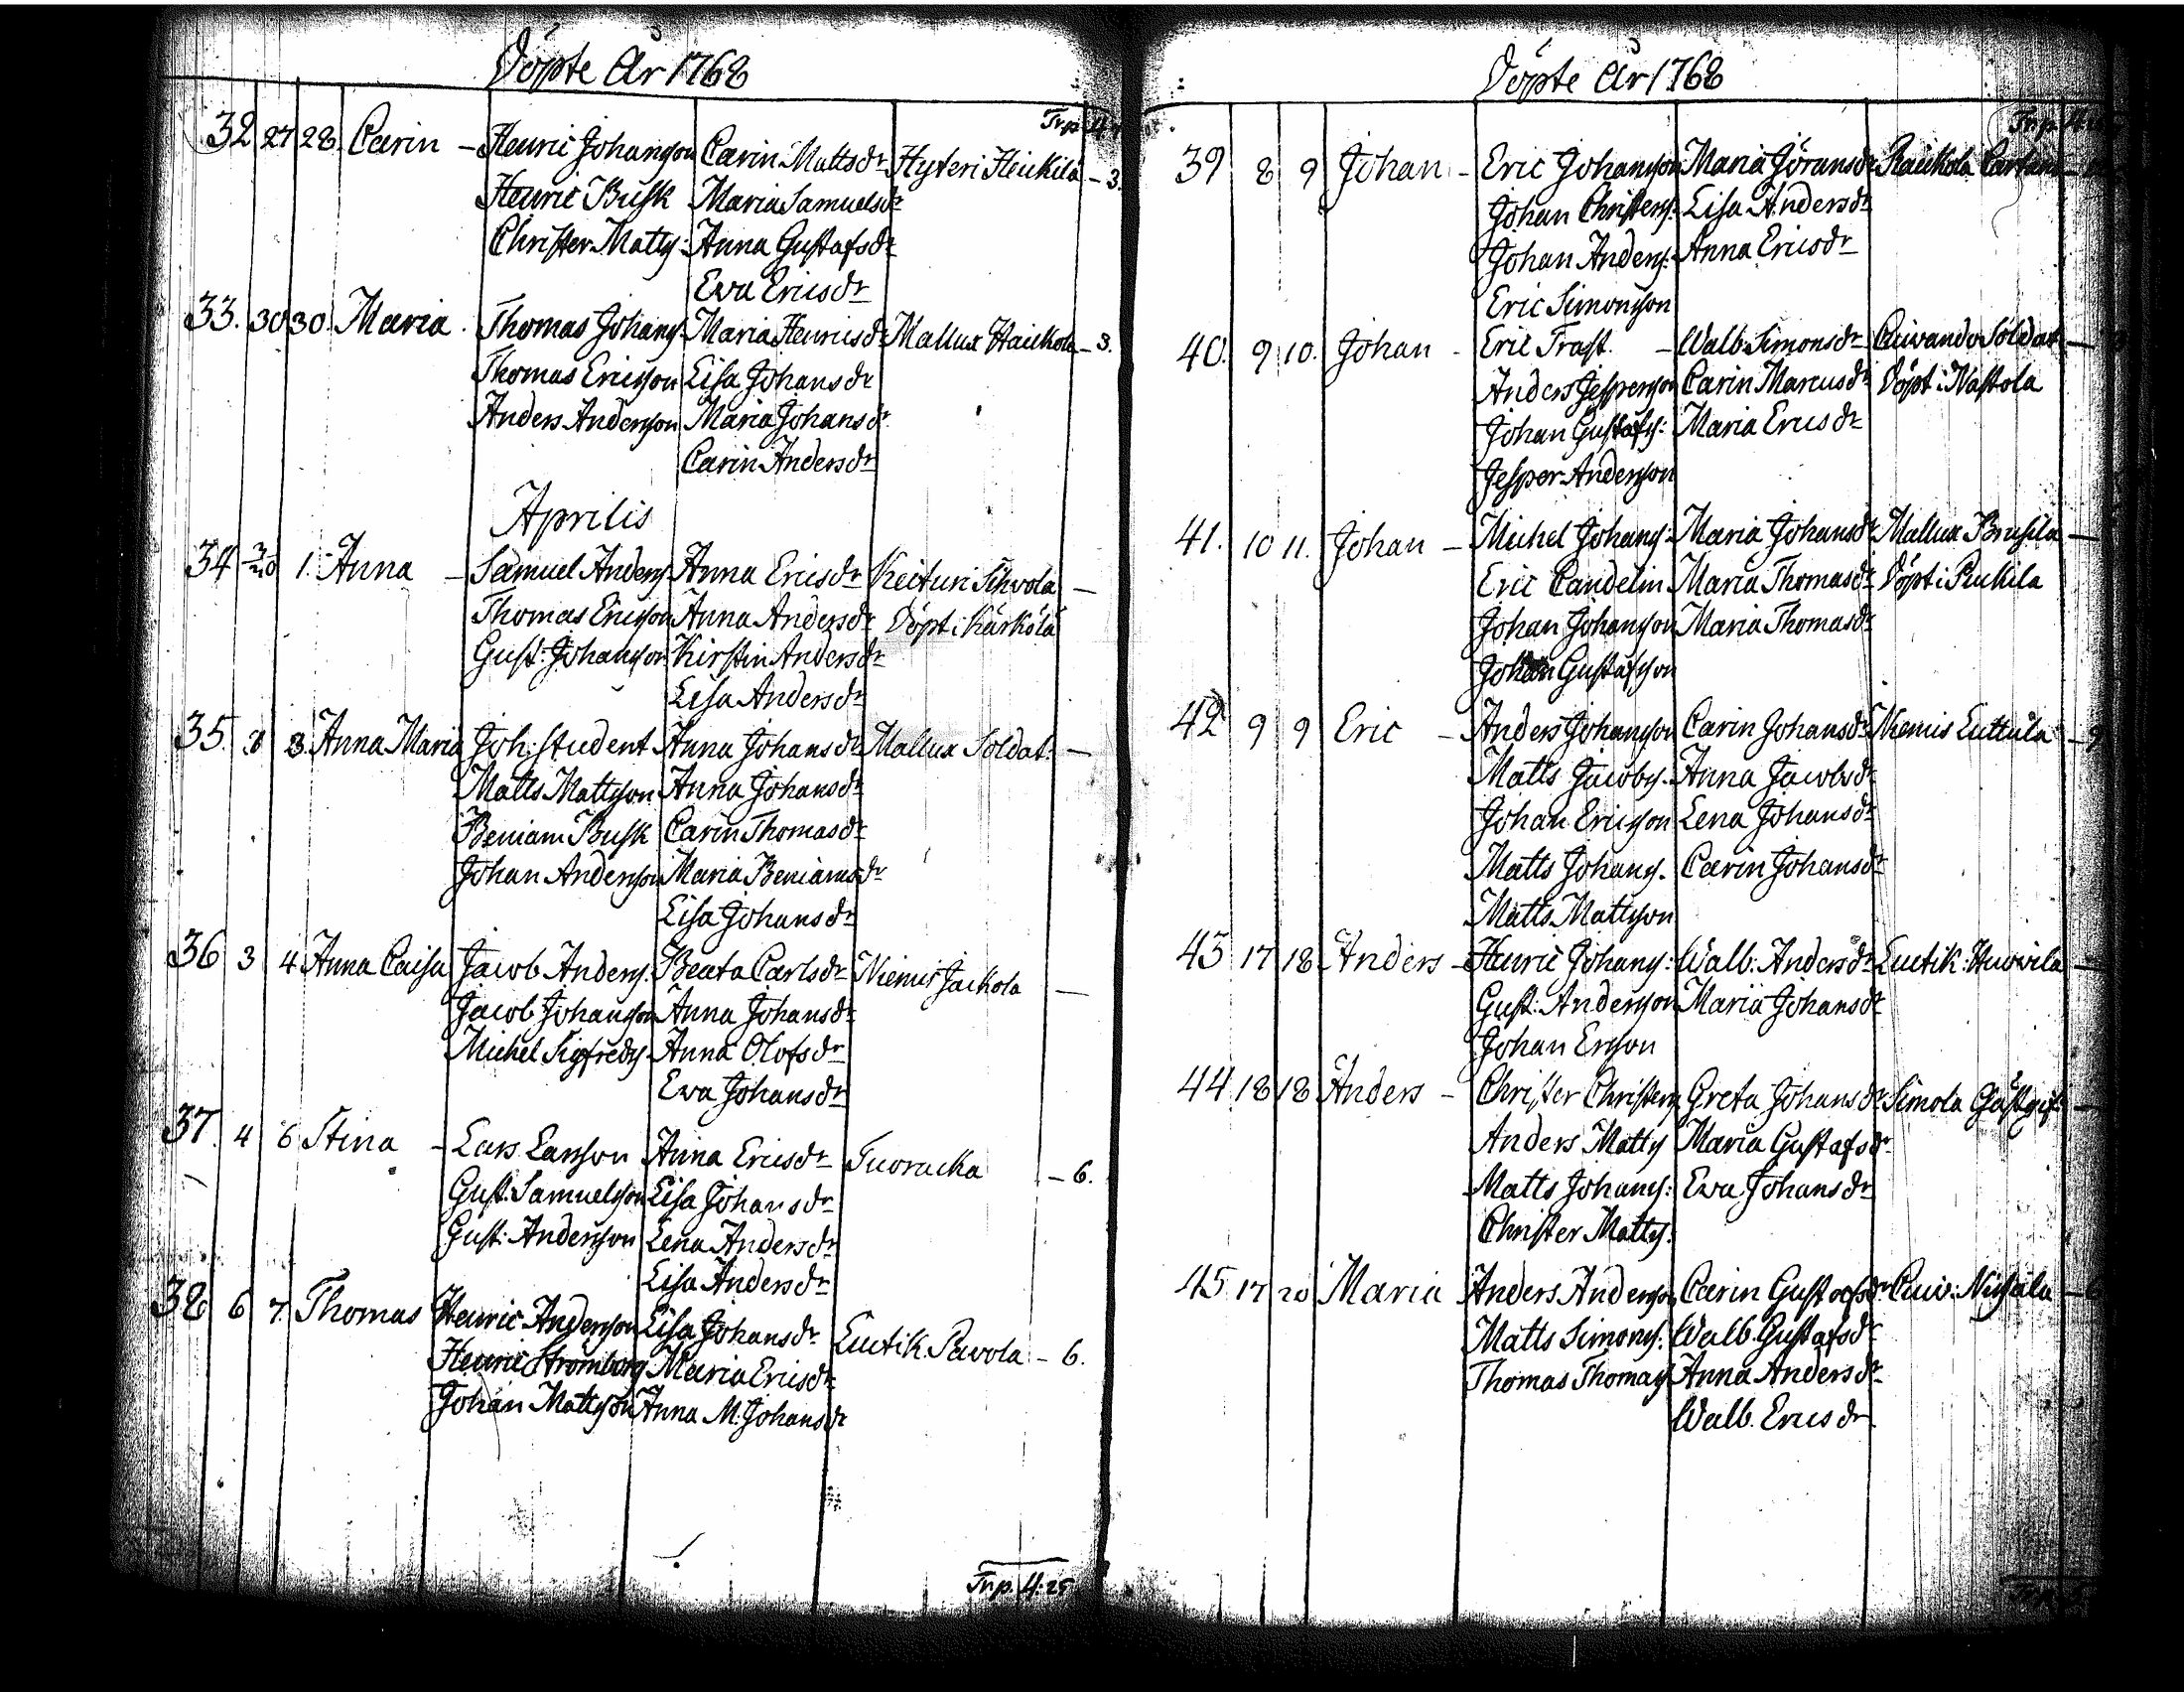 Döpte År 1768
Trp.
32 27 28. Carin - Henric Johansson Carin Mattsdr Hyteri Heickilä - 3.
Henric Busk Maria Samuelsdr
Christer Matts: Anna Gustafsdr
Eva Ericsdr
33. 30 30. Maria Thomas Johans: Maria Henricsdr Mallux Haickola - 3.
Thomas Ericsson Lisa Johansdr
Anders Andersson Maria Johansdr
Carin Andersdr
Aprilis
34 1. Anna - Samuel Anders: Anna Ericsdr Keituri Sihvola -
Thomas Ericsson Anna Andersdr Döpt i Kärkölä
Gust: Johansson Kirstin Andersdr
Lisa Andersdr
35. 3. Anna Maria Joh: Student Anna Johansdr Mallux Soldat: -
Matts Mattsson Anna Johansdr
Beniam Busk Carin Thomasdr
Johan Andersson Maria Beniamsdr
Lisa Johansdr
36 3 4 Anna Caisa Jacob Anders: Beata Carlsdr Niemis Jackola -
Jacob Johansson Anna Johansdr
Michel Sigfreds: Anna Olofsdr
Eva Johansdr
37. 4 6 Stina - Lars Larsson Anna Ericsdr Tuoracka - 6.
Gust: Samuelsson Lisa Johansdr
Gust: Andersson Lena Andersdr
Lisa Andersdr
38 6 7. Thomas Henric Andersson Lisa Johansdr Luttik. Pavola - 6.
Henric Strömberg Maria Ericsdr
Johan Mattsson Anna M. Johansdr
Trp. 4:25
Döpte År 1768
Trp.
39 8 9 Johan - Eric Johansson Maria Jöransdr Raickola
Johan Christers: Lisa Andersdr
Johan Anders: Anna Ericsdr
Eric Simonsson
40. 9 10. Johan - Eric Trast. - Walb: Simonsdr Cuivando Soldat -
Anders Jespersson Carin Marcusdr Döpt i Nastola
Johan Gustafs: Maria Ericsdr
Jesper Andersson
41. 10 11. Johan - Michel Johans: Maria Johansdr Mallux Brusila -
Eric Candelin Maria Thomasdr Döpt i Peickila
Johan Johansson Maria Thomasdr
Johan Gustafsson
42 9 9 Eric - Anders Johansson Carin Johansdr Niemis Luttula - 9
Matts Jacobs: Anna Jacobsdr
Johan Ericsson Lena Johansdr
Matts Johans. Carin Johansdr
Matts Mattsson
43 17 18 Anders - Henric Johans: Walb: Andersdr Luttik: Huovila -
Gust: Andersson Maria Johansdr
Johan Ersson
44 18 18 Anders - Christer Christers: Greta Johansdr Simola Gästgif: -
Anders Matts: Maria Gustafsdr
Matts Johans: Eva Johansdr
Christer Matts:
45 17 20 Maria Anders Andersson Carin Gustafsdr Cuiv: Nissala -
Matts Simons: Walb. Gustafsdr
Thomas Thomas: Anna Andersdr
Walb. Ericsdr